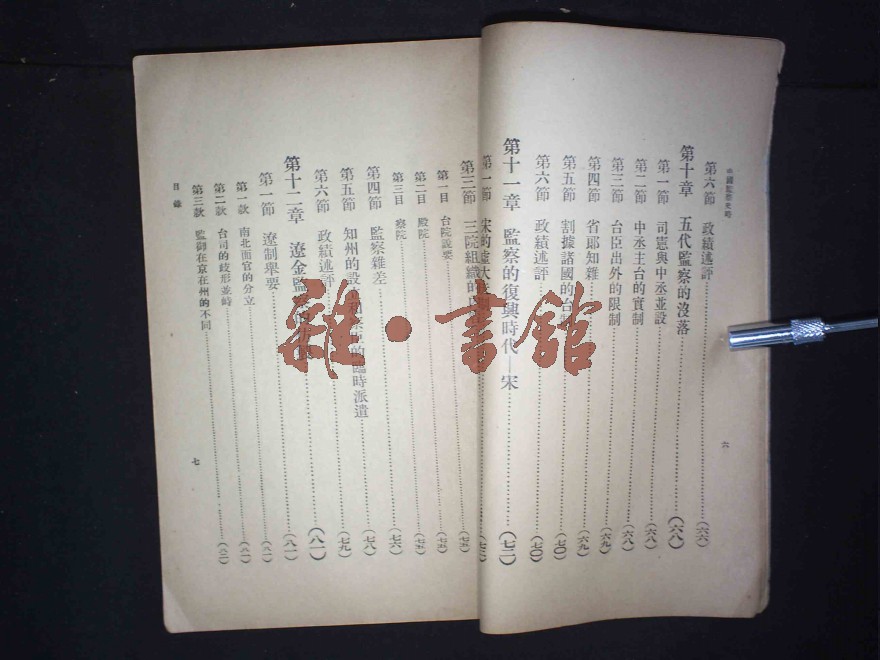 中國監察史略
第六節 政績述評……(六六)
第十章 五代監察的沒落……(六八)
第一節 司憲與中丞並設……(六八)
第二節 中丞主台的實制……(六八)
第三節 台臣出外的限制……(六九)
第四節 省郎知雜……(六九)
第五節 割據諸國的台……(七〇)
第六節 政績述評……(七〇)
第十一章 監察的復興時代—宋……(七二)
六
第一節 宋的
第二節 三院組織的
第一目 台院說要
第二目 殿院
第三目 察院……(七六)
第四節 監察雜差……(七八)
第五節 知州的設 臨時派遣……(七九)
第六節 政績述評……(七九)
第十二章 遼金監……(八一)
第一節 遼制舉要……(八一)
第一款 南北面官的分立
第二款 台司的歧形並峙
第三款 監御在京在州的不同
目錄
七
雜·書館